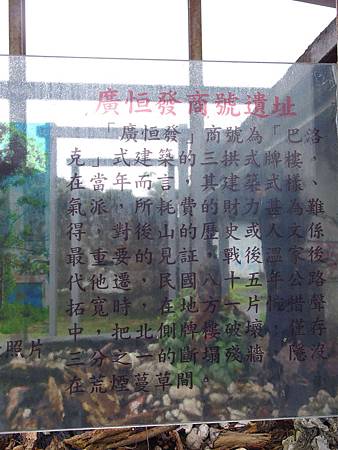 廣恒發商號遺址
「廣恒發」商號為「巴洛
克」式建築三拱式牌樓，
在當年而言，其建築式樣、
氣派，所耗費的財力甚為難
得，對後山的歷史或人文係
最重要的見証，戰後溫家後
代他遷，民國八十五年公路
拓寬時，在地方一片惋惜聲
中，把北側牌樓破壞，僅存
三分之一的斷塌殘牆隱沒
在荒煙蔓草間。
照片